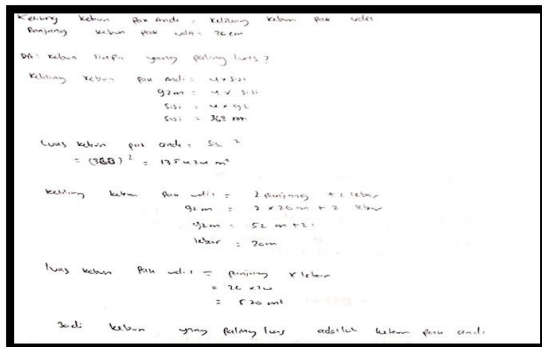 Keliling kebun pak Andi = keliling kebun pak udi
Panjang kebun pak udi = 26 cm
Dit : kebun siapa yang paling luas ?
Keliling kebun pak Andi = 4 x sisi
92 m = 4 x sisi
sisi = 4 x 92
sisi = 368 m
Luas kebun pak andi = sisi ²
= (368)² = 135424 m²
Keliling kebun pak udi = 2 panjang + 2 lebar
92 m = 2 x 26 m + 2 lebar
92 m = 52 m + 2
lebar = 20m
luas kebun pak udi = panjang x lebar
= 26 x 20
= 520 m²
Jadi kebun yang paling luas adalah kebun pak andi